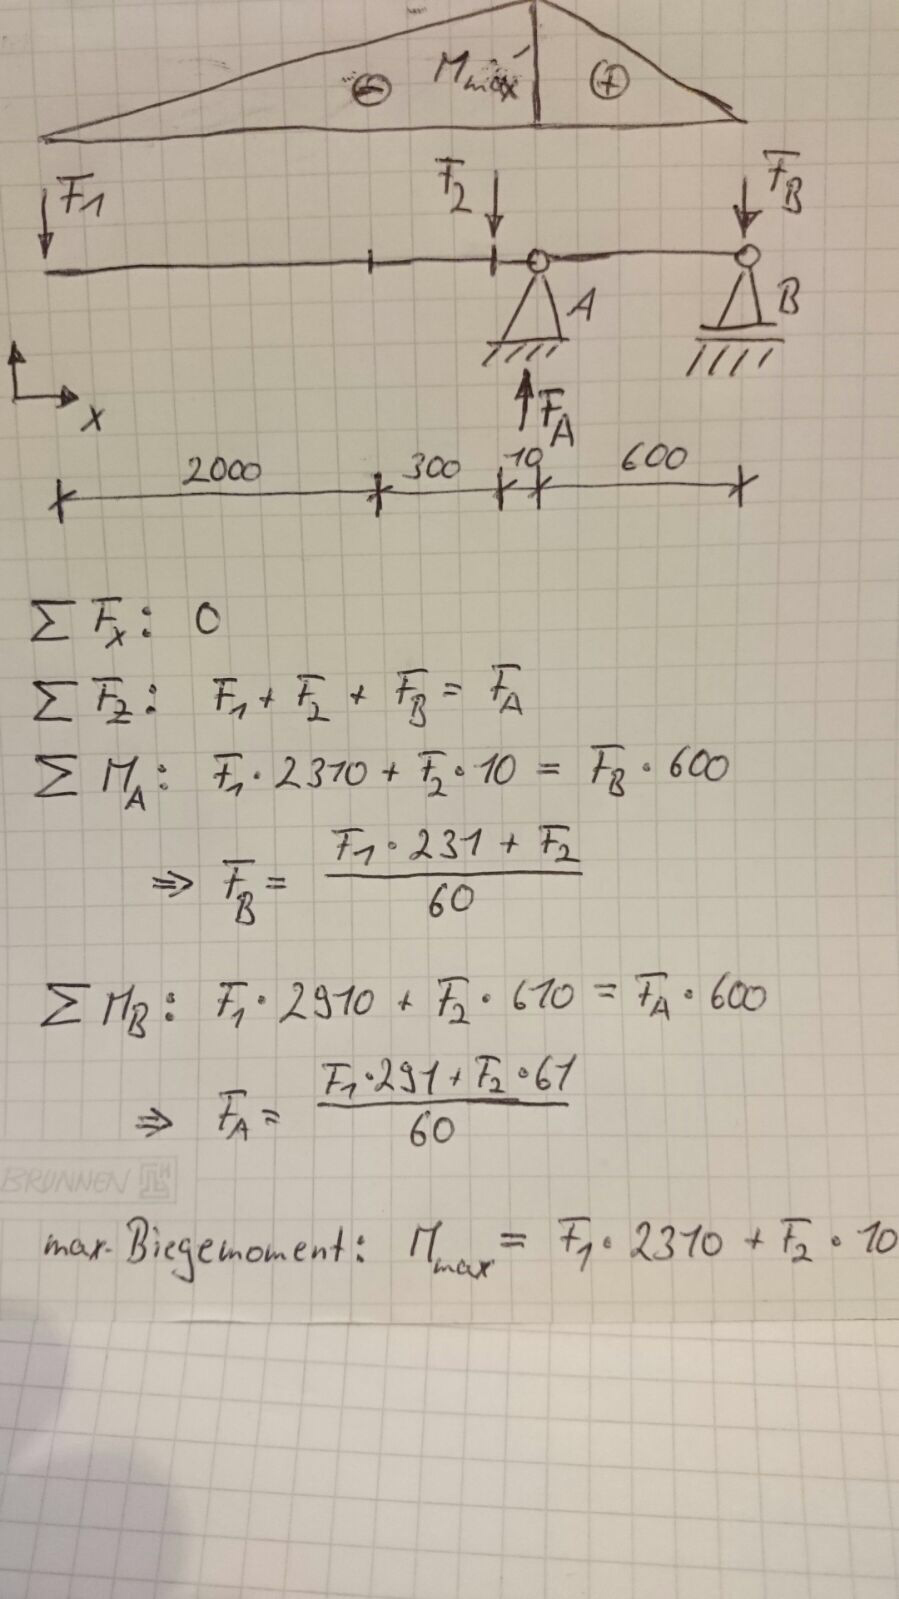 M max
F1 F2 FB
A B
x FA
2000 300 10 600
Σ Fx: 0
Σ Fz: F1 + F2 + FB = FA
Σ MA: F1 · 2310 + F2 · 10 = FB · 600
⇒ FB = (F1 · 231 + F2) / 60
Σ MB: F1 · 2910 + F2 · 610 = FA · 600
⇒ FA = (F1 · 291 + F2 · 61) / 60
BRUNNEN
max. Biegemoment: Mmax = F1 · 2310 + F2 · 10